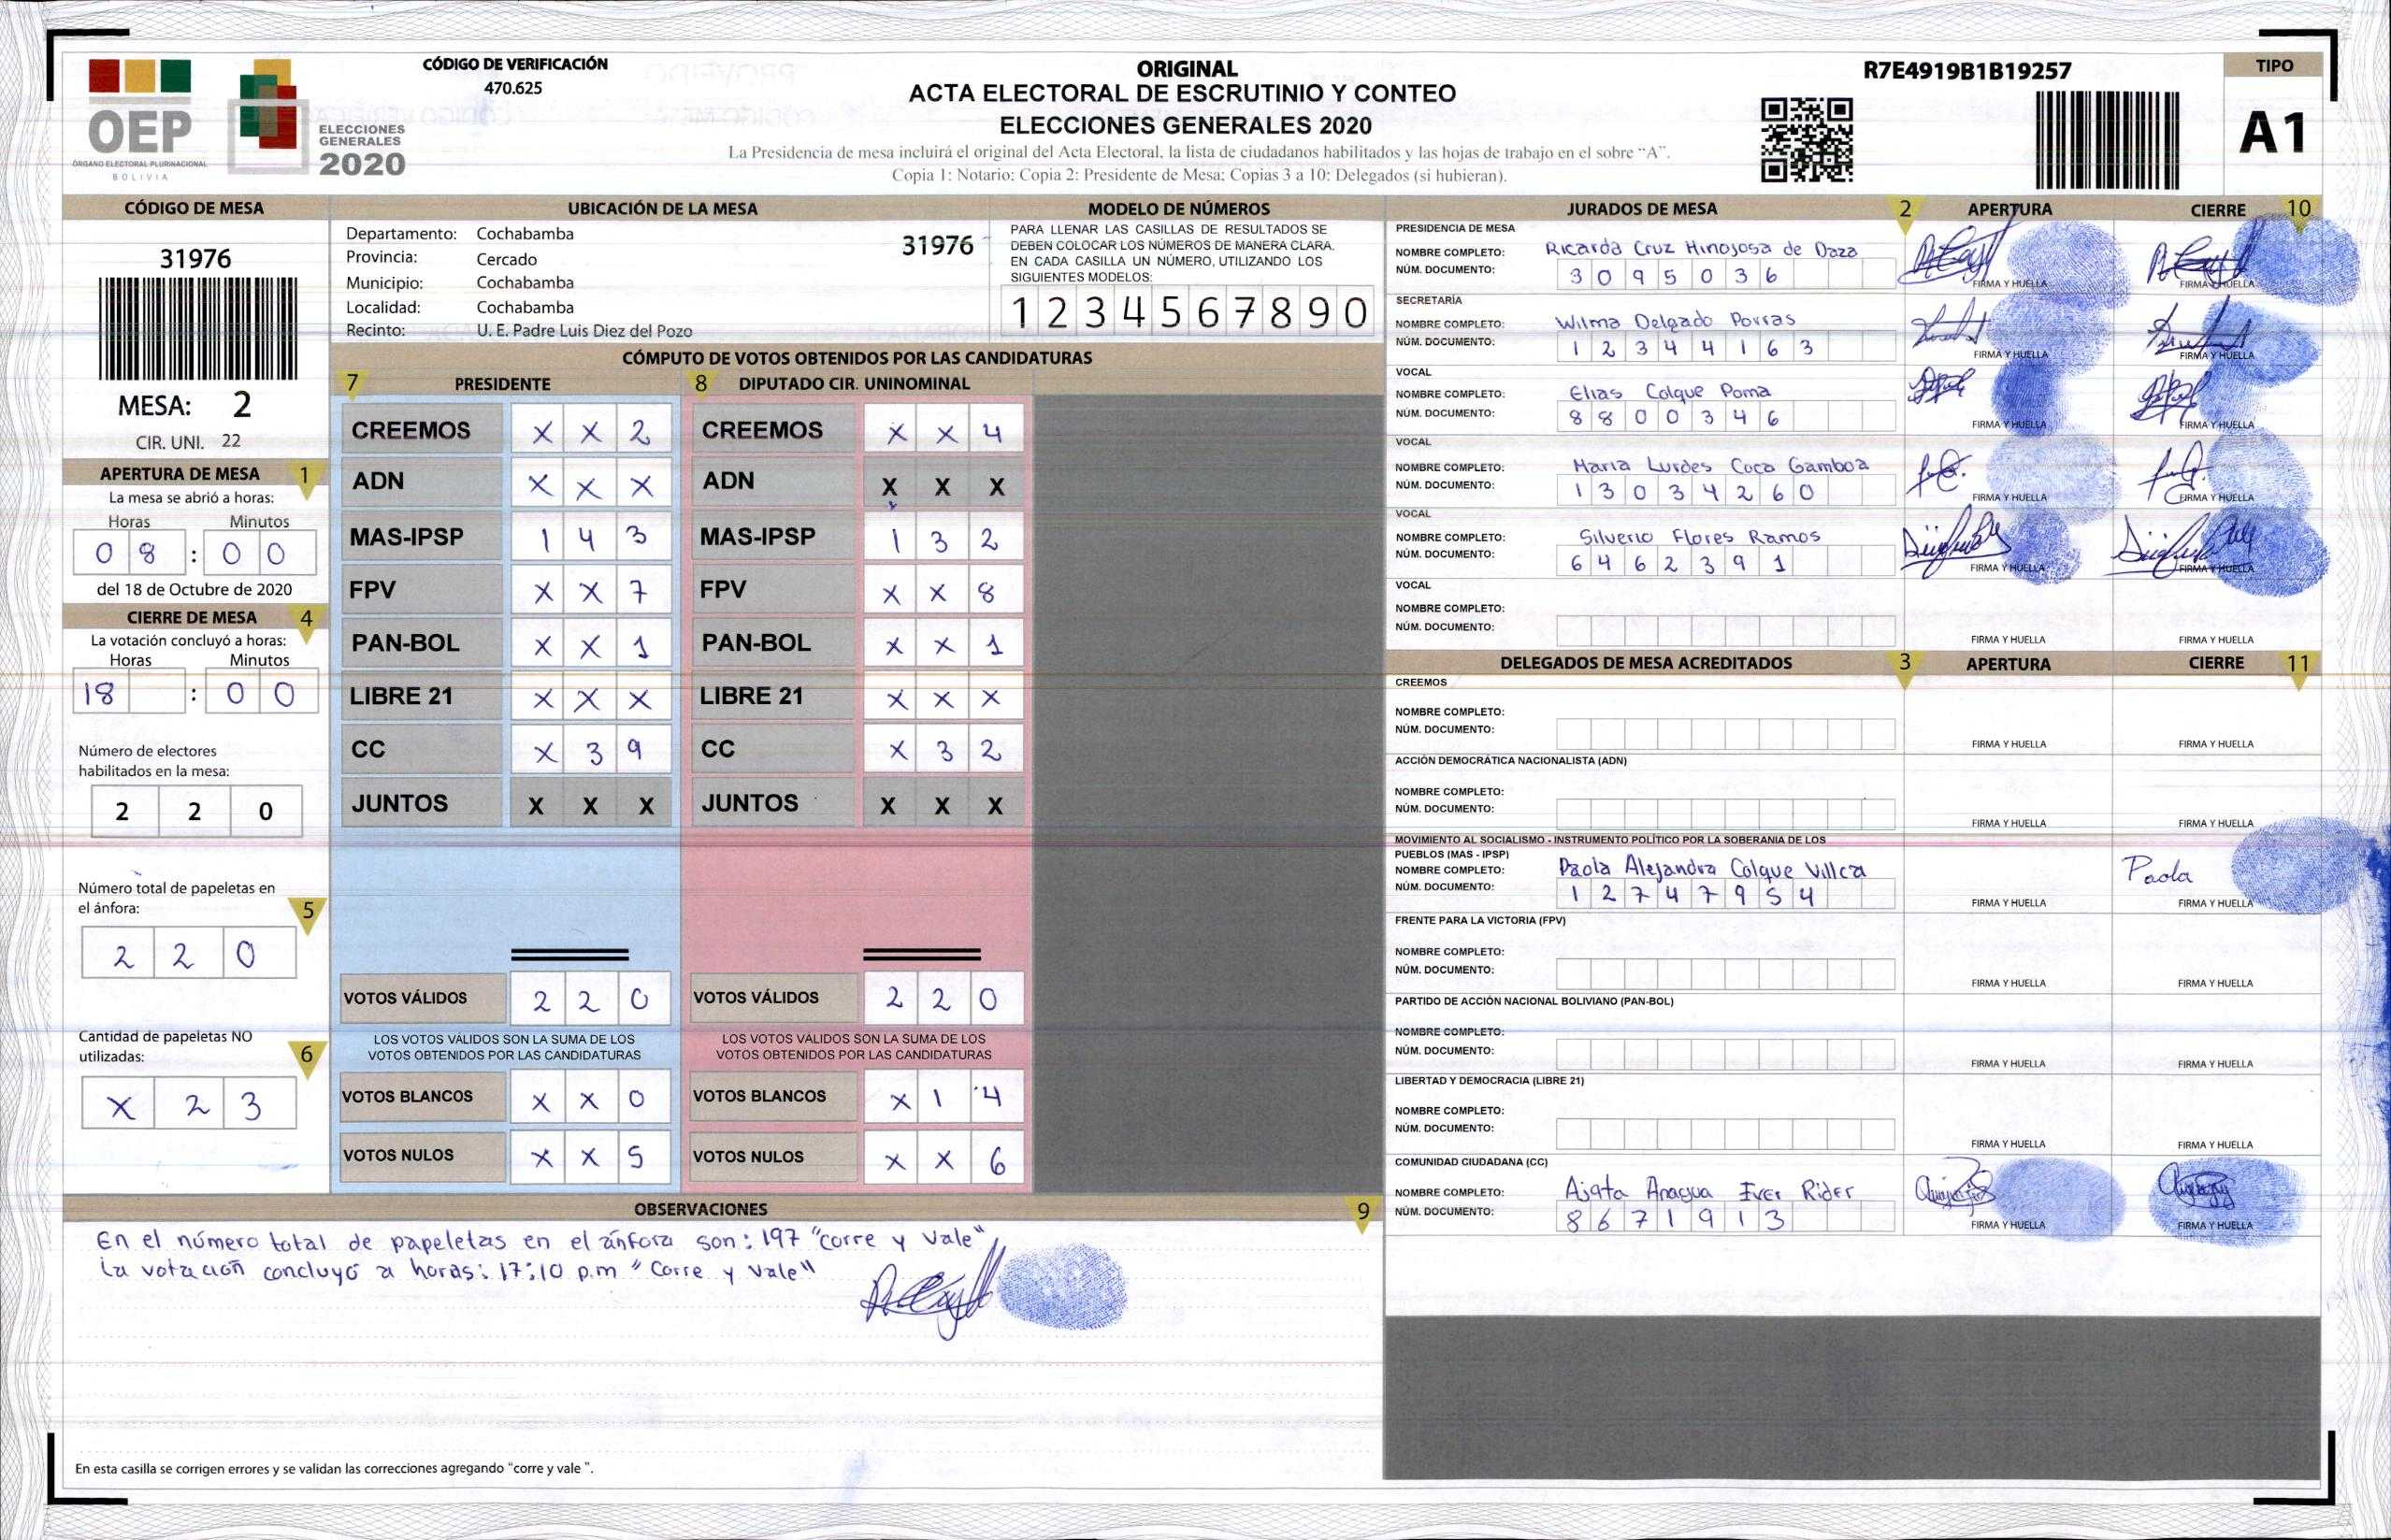 OEP
ÓRGANO ELECTORAL PLURINACIONAL
BOLIVIA
ELECCIONES
GENERALES
2020
CÓDIGO DE VERIFICACIÓN
470.625
ORIGINAL
ACTA ELECTORAL DE ESCRUTINIO Y CONTEO
ELECCIONES GENERALES 2020
La Presidencia de mesa incluirá el original del Acta Electoral, la lista de ciudadanos habilitados y las hojas de trabajo en el sobre "A".
Copia 1: Notario; Copia 2: Presidente de Mesa; Copias 3 a 10: Delegados (si hubieran).
R7E4919B1B19257
TIPO
A1
CÓDIGO DE MESA
31976
MESA: 2
CIR. UNI. 22
APERTURA DE MESA 1
La mesa se abrió a horas:
Horas Minutos
0 8 : 0 0
del 18 de Octubre de 2020
CIERRE DE MESA 4
La votación concluyó a horas:
Horas Minutos
18 : 0 0
Número de electores
habilitados en la mesa:
2 2 0
Número total de papeletas en
el ánfora: 5
2 2 0
Cantidad de papeletas NO
utilizadas: 6
X 2 3
UBICACIÓN DE LA MESA
Departamento: Cochabamba
31976
Provincia: Cercado
Municipio: Cochabamba
Localidad: Cochabamba
Recinto: U. E. Padre Luis Diez del Pozo
MODELO DE NÚMEROS
PARA LLENAR LAS CASILLAS DE RESULTADOS SE
DEBEN COLOCAR LOS NÚMEROS DE MANERA CLARA.
EN CADA CASILLA UN NÚMERO, UTILIZANDO LOS
SIGUIENTES MODELOS:
1 2 3 4 5 6 7 8 9 0
CÓMPUTO DE VOTOS OBTENIDOS POR LAS CANDIDATURAS
7 PRESIDENTE 8 DIPUTADO CIR. UNINOMINAL
CREEMOS X X 2 CREEMOS X X 4
ADN X X X ADN X X X
MAS-IPSP 1 4 3 MAS-IPSP 1 3 2
FPV X X 7 FPV X X 8
PAN-BOL X X 1 PAN-BOL X X 1
LIBRE 21 X X X LIBRE 21 X X X
CC X 3 9 CC X 3 2
JUNTOS X X X JUNTOS X X X
VOTOS VÁLIDOS 2 2 0 VOTOS VÁLIDOS 2 2 0
LOS VOTOS VÁLIDOS SON LA SUMA DE LOS LOS VOTOS VÁLIDOS SON LA SUMA DE LOS
VOTOS OBTENIDOS POR LAS CANDIDATURAS VOTOS OBTENIDOS POR LAS CANDIDATURAS
VOTOS BLANCOS X X 0 VOTOS BLANCOS X 1 4
VOTOS NULOS X X 5 VOTOS NULOS X X 6
OBSERVACIONES 9
En el número total de papeletas en el ánfora son: 197 "corre y vale"
La votación concluyó a horas: 17:10 p.m "Corre y vale"
En esta casilla se corrigen errores y se validan las correcciones agregando "corre y vale ".
JURADOS DE MESA 2 APERTURA CIERRE 10
PRESIDENCIA DE MESA
NOMBRE COMPLETO: Ricarda Cruz Hinojosa de Daza
NÚM. DOCUMENTO: 3 0 9 5 0 3 6
FIRMA Y HUELLA FIRMA Y HUELLA
SECRETARÍA
NOMBRE COMPLETO: Wilma Delgado Porras
NÚM. DOCUMENTO: 1 2 3 4 4 1 6 3
FIRMA Y HUELLA FIRMA Y HUELLA
VOCAL
NOMBRE COMPLETO: Elias Colque Poma
NÚM. DOCUMENTO: 8 8 0 0 3 4 6
FIRMA Y HUELLA FIRMA Y HUELLA
VOCAL
NOMBRE COMPLETO: Maria Lurdes Coca Gamboa
NÚM. DOCUMENTO: 1 3 0 3 4 2 6 0
FIRMA Y HUELLA FIRMA Y HUELLA
VOCAL
NOMBRE COMPLETO: Silverio Flores Ramos
NÚM. DOCUMENTO: 6 4 6 2 3 9 1
FIRMA Y HUELLA FIRMA Y HUELLA
VOCAL
NOMBRE COMPLETO:
NÚM. DOCUMENTO:
FIRMA Y HUELLA FIRMA Y HUELLA
DELEGADOS DE MESA ACREDITADOS 3 APERTURA CIERRE 11
CREEMOS
NOMBRE COMPLETO:
NÚM. DOCUMENTO:
FIRMA Y HUELLA FIRMA Y HUELLA
ACCIÓN DEMOCRÁTICA NACIONALISTA (ADN)
NOMBRE COMPLETO:
NÚM. DOCUMENTO:
FIRMA Y HUELLA FIRMA Y HUELLA
MOVIMIENTO AL SOCIALISMO - INSTRUMENTO POLÍTICO POR LA SOBERANIA DE LOS
PUEBLOS (MAS - IPSP)
NOMBRE COMPLETO: Paola Alejandra Colque Villca
Paola
NÚM. DOCUMENTO: 1 2 7 4 7 9 5 4
FIRMA Y HUELLA FIRMA Y HUELLA
FRENTE PARA LA VICTORIA (FPV)
NOMBRE COMPLETO:
NÚM. DOCUMENTO:
FIRMA Y HUELLA FIRMA Y HUELLA
PARTIDO DE ACCIÓN NACIONAL BOLIVIANO (PAN-BOL)
NOMBRE COMPLETO:
NÚM. DOCUMENTO:
FIRMA Y HUELLA FIRMA Y HUELLA
LIBERTAD Y DEMOCRACIA (LIBRE 21)
NOMBRE COMPLETO:
NÚM. DOCUMENTO:
FIRMA Y HUELLA FIRMA Y HUELLA
COMUNIDAD CIUDADANA (CC)
NOMBRE COMPLETO: Ajata Anagua Iver Rider
NÚM. DOCUMENTO: 8 6 7 1 9 1 3
FIRMA Y HUELLA FIRMA Y HUELLA